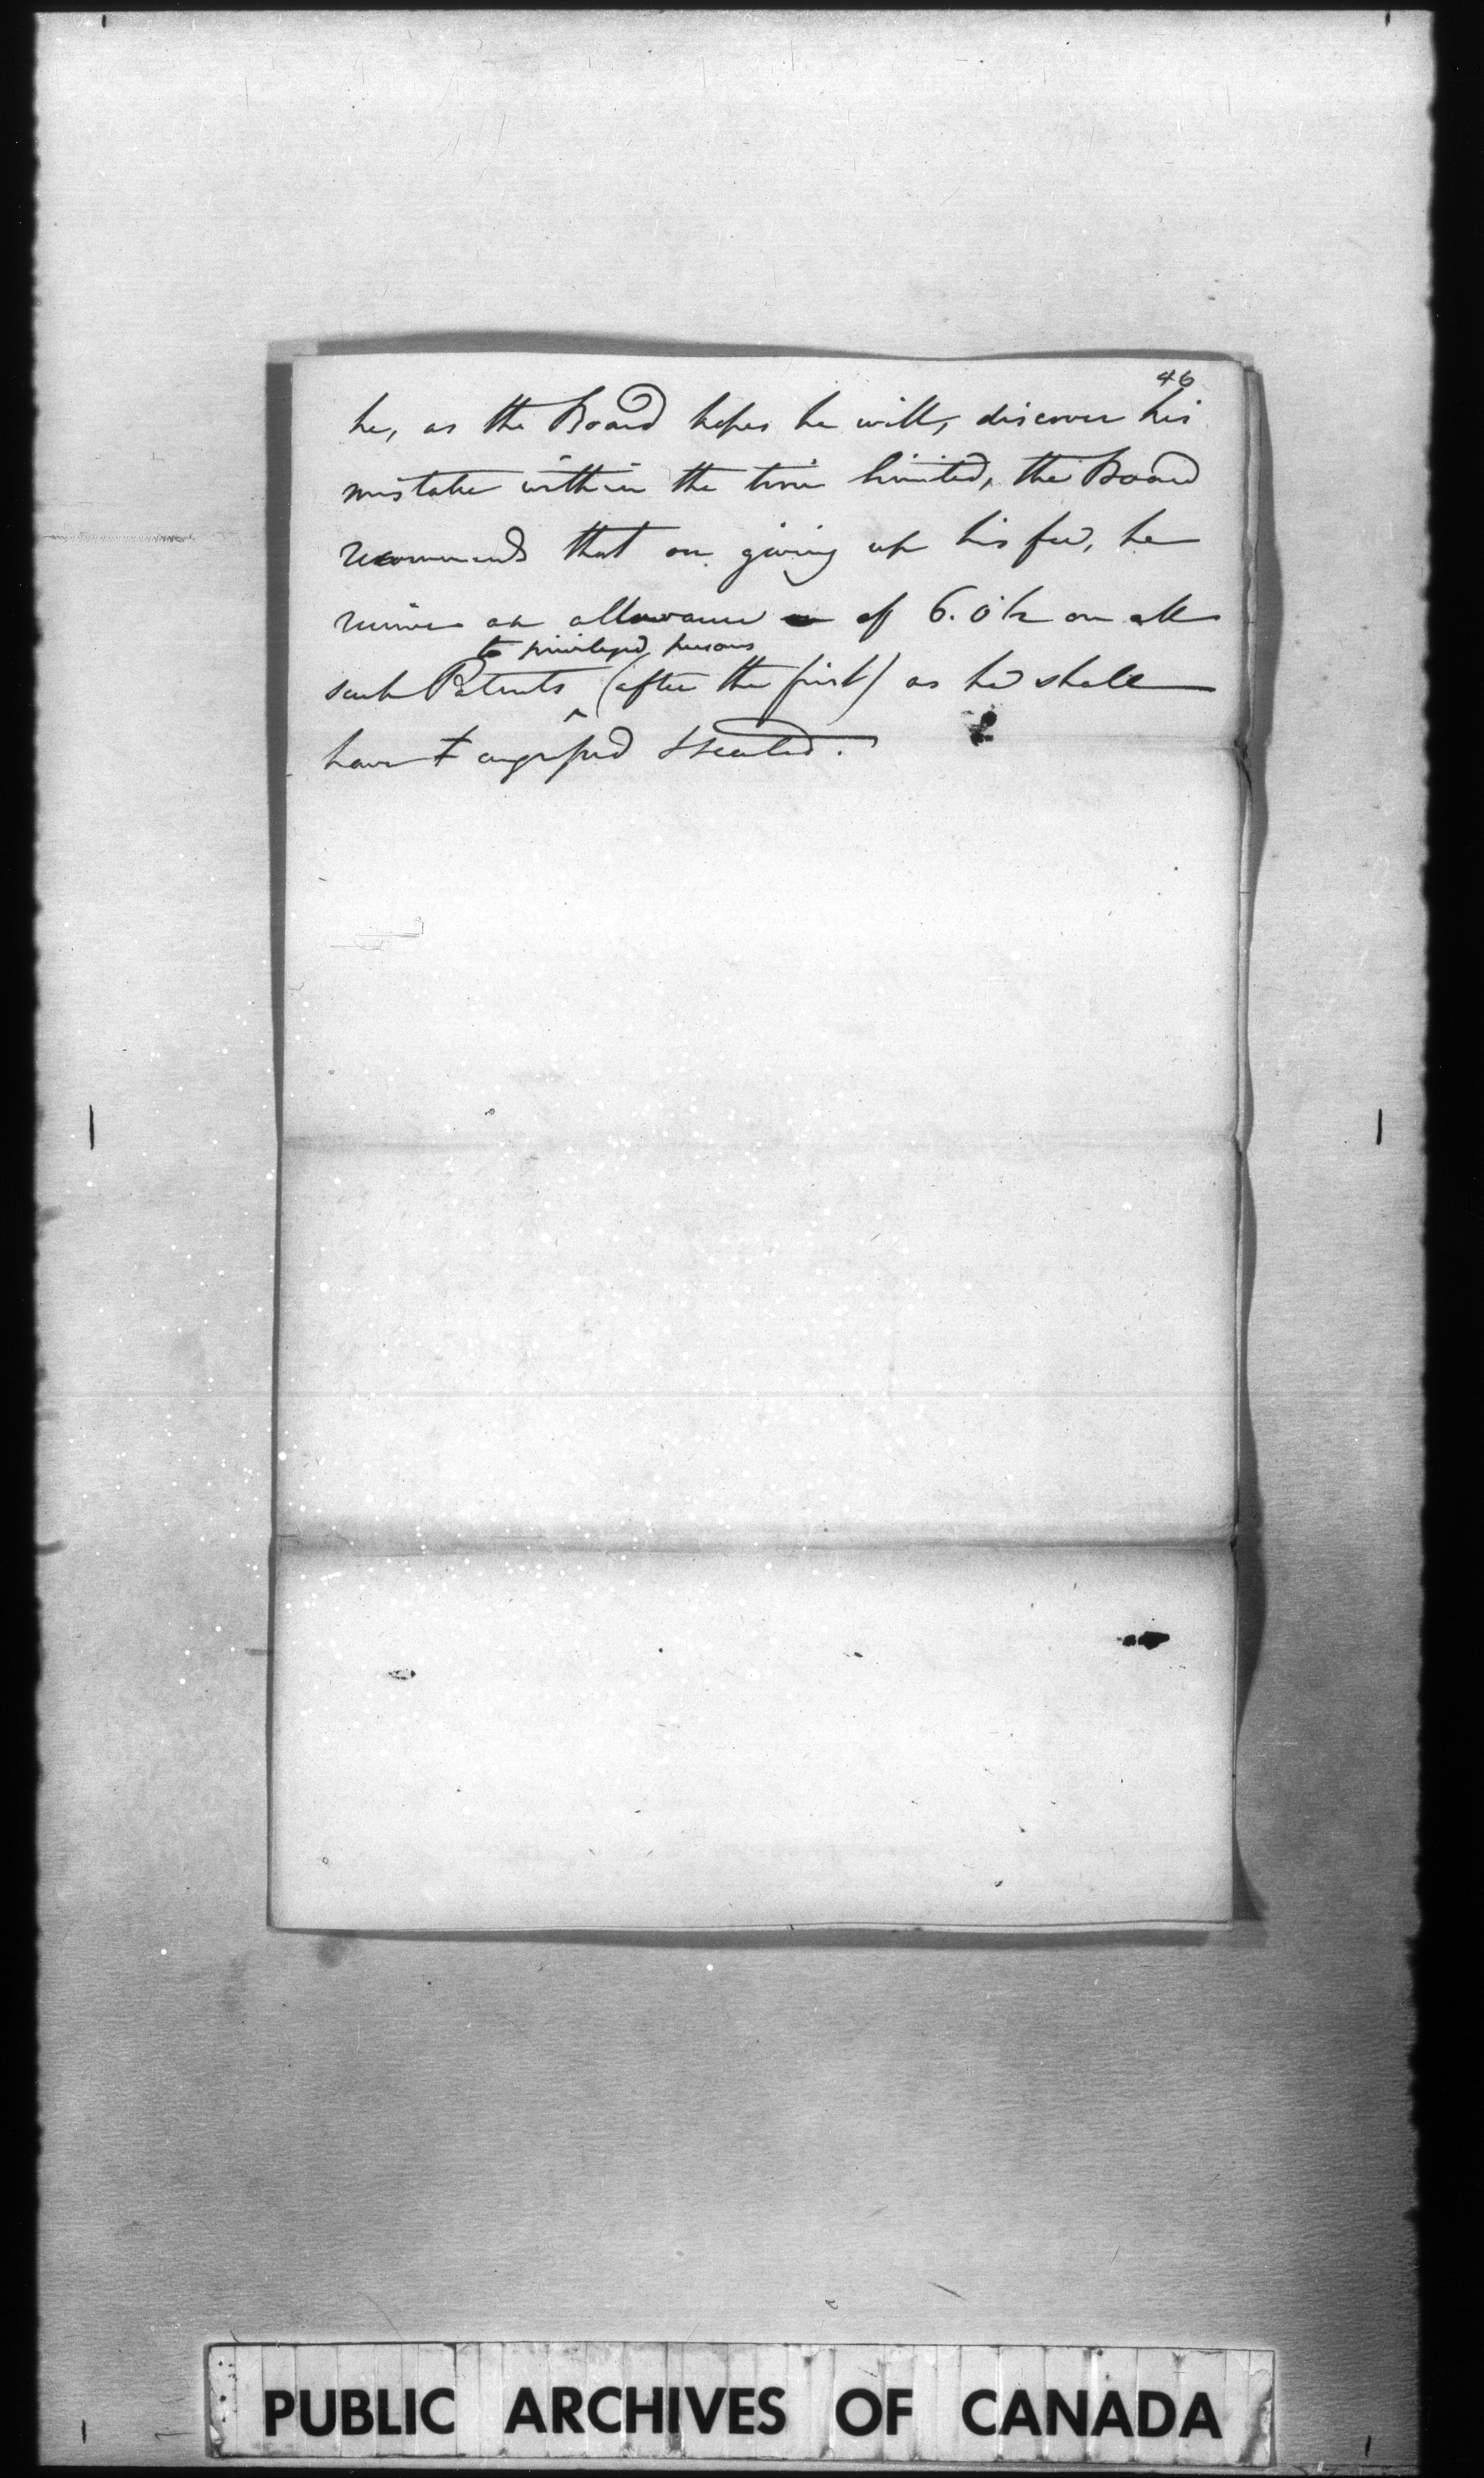 46
he, as the Board hopes he will, discover his
mistake within the time limited, the Board
recommends that on giving up his fee, he
receive an allowance of 6. 0½ on all
to privileged persons
such Patents ^ (after the first) as he shall
have engrossed & sealed.
PUBLIC ARCHIVES OF CANADA